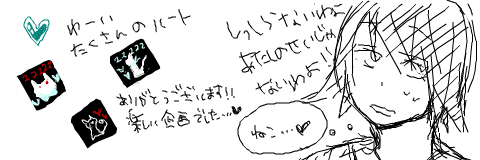 わーい
たくさんのハート
ありがとうございます!!
楽しい企画でした…♥
しっしらないわよー
あたしのせいじゃ
ないわよ!!
ねこ…♥